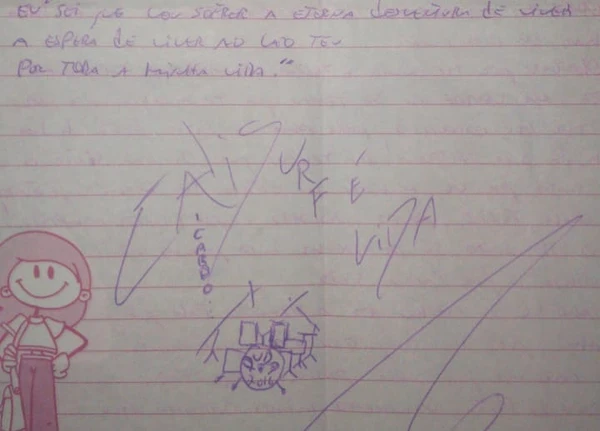 EU SEI QUE VOU SOFRER A ETERNA DESVENTURA DE VIVER
A ESPERA DE VIVER AO LADO TEU
POR TODA A MINHA VIDA."
SURF É
VIDA
ICARDO